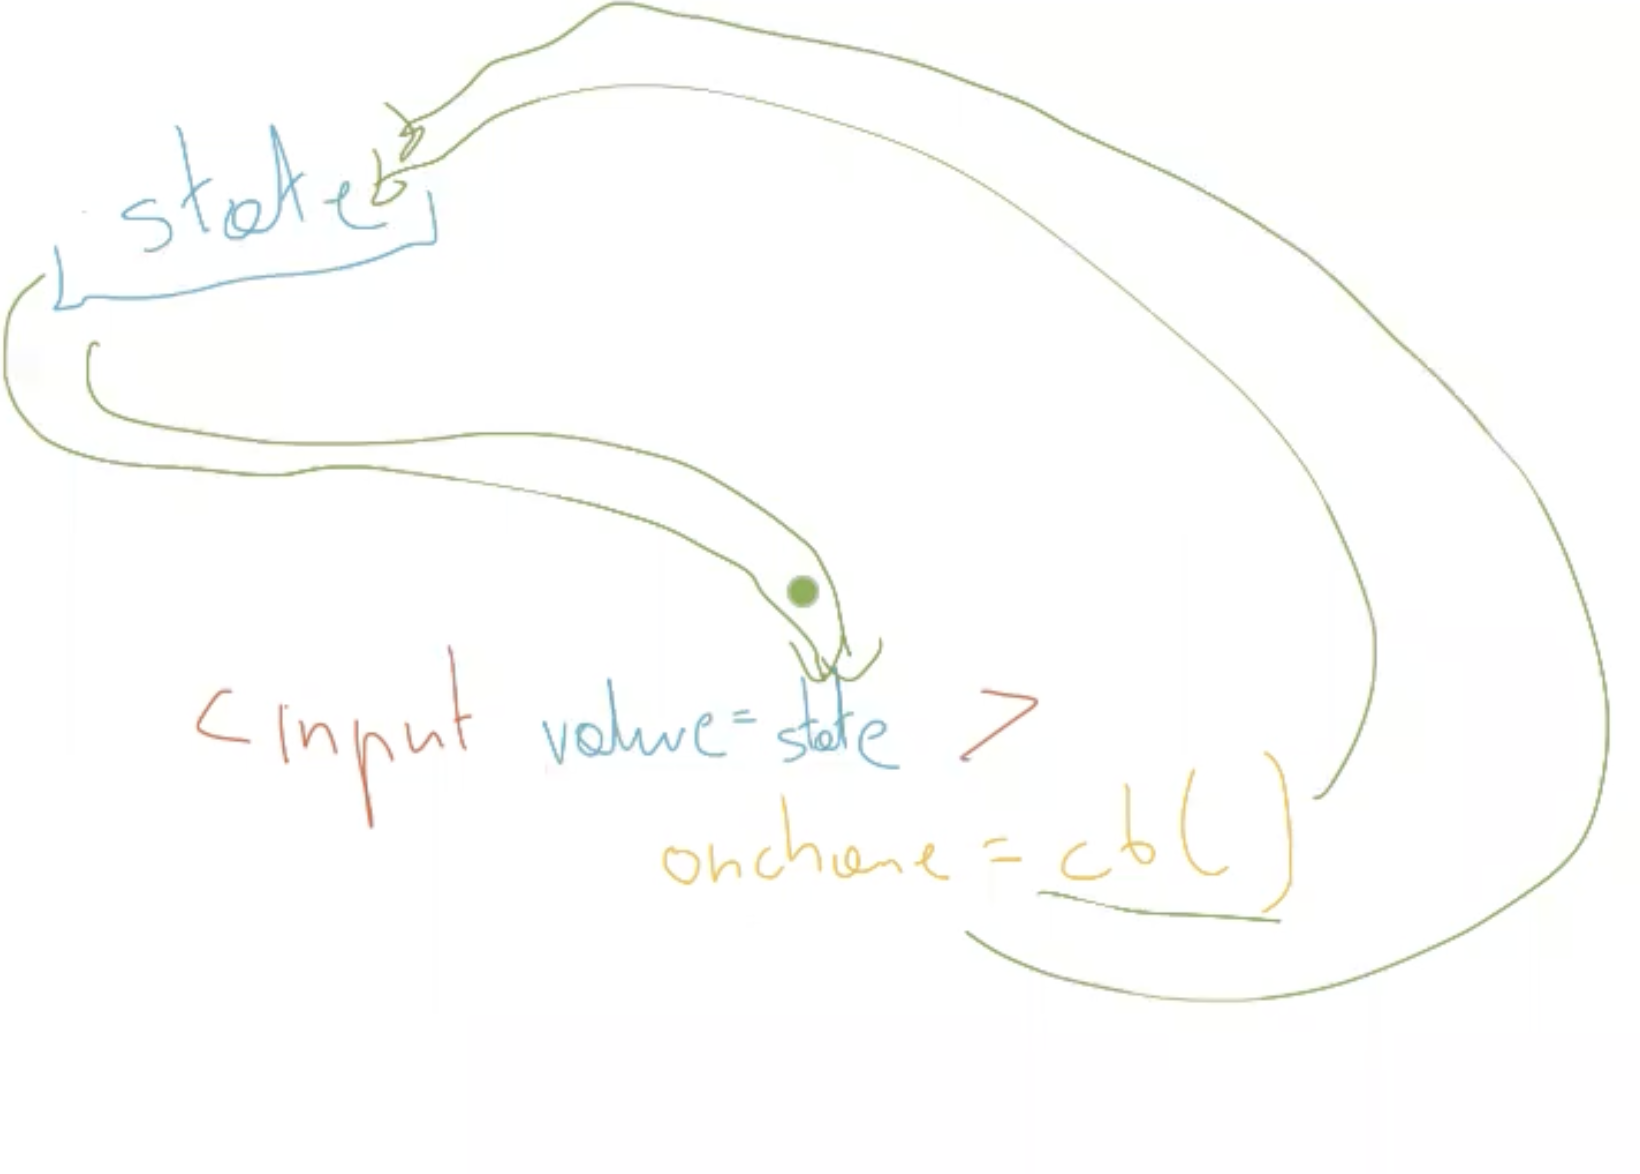 state
<input value=state >
onchane = cb()